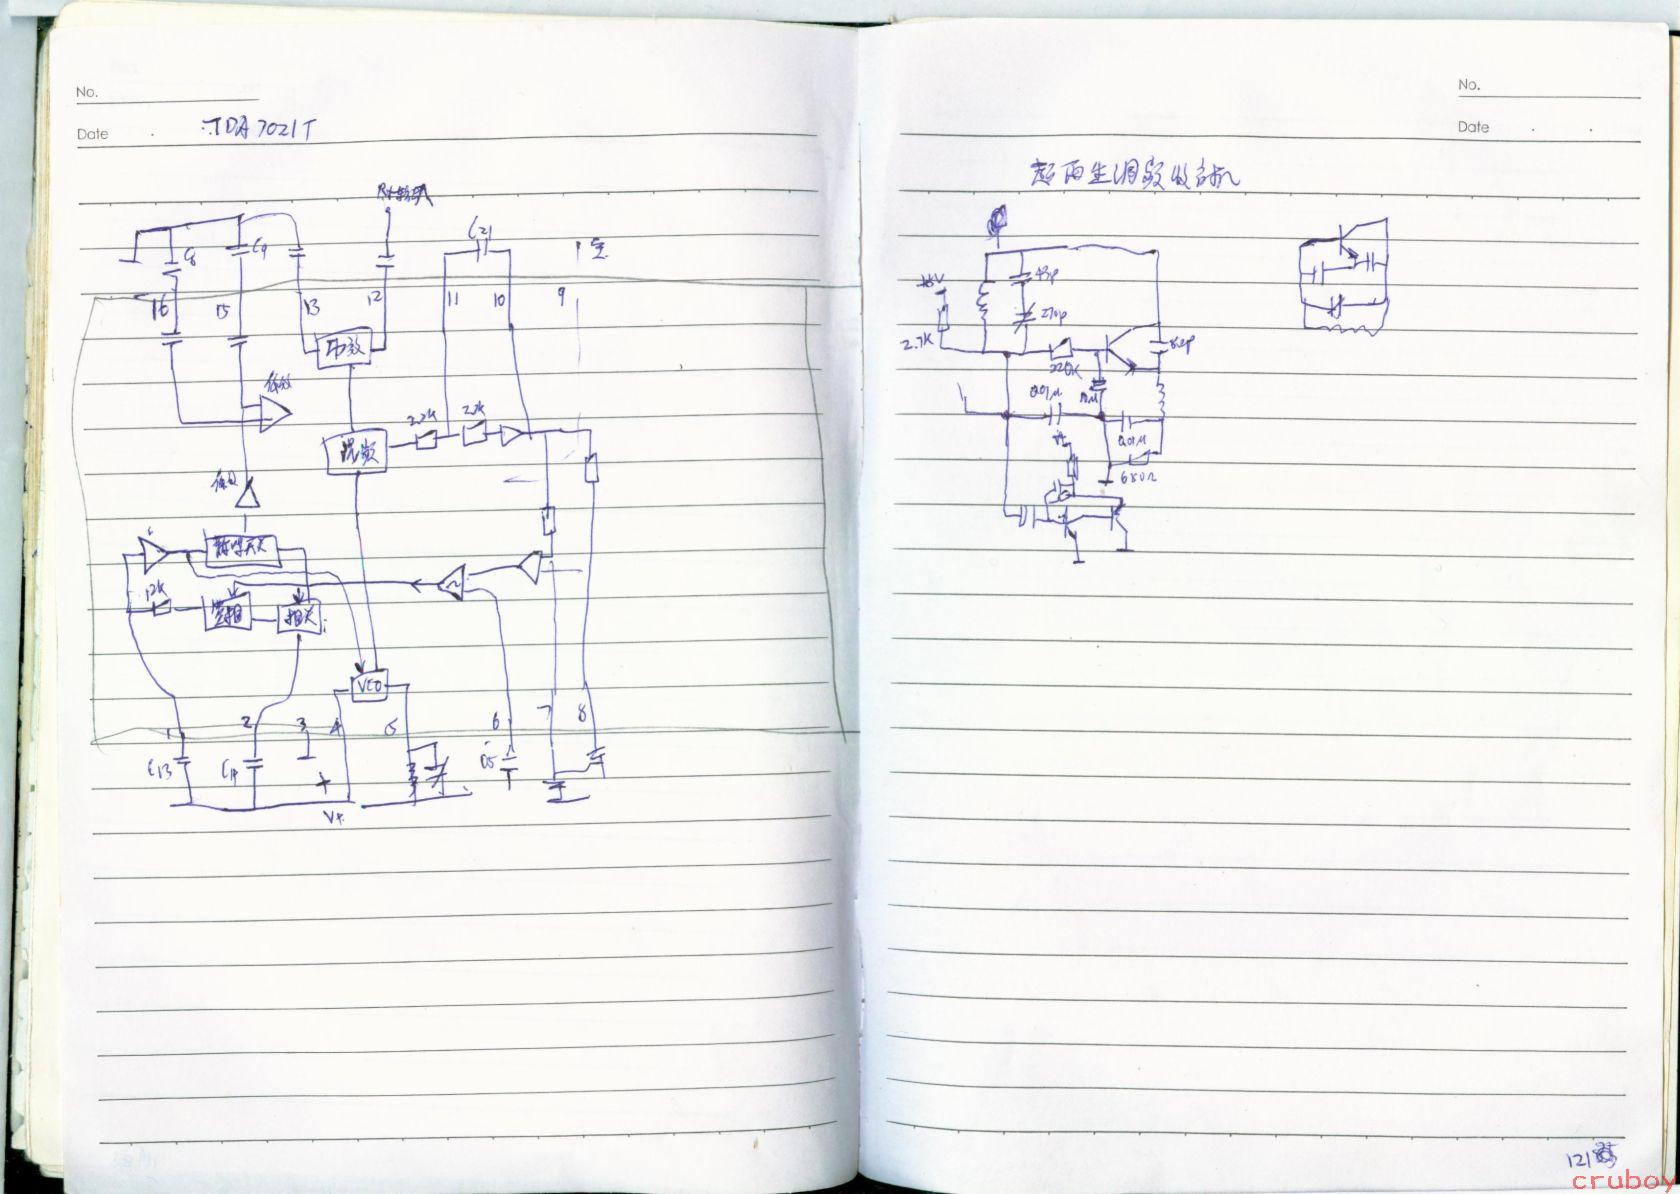 No.
Date
TDA7021T
RF输入
C8
C9
C21
空
16
15
13
12
11
10
9
高放
低放
混频
2.2K
2.2K
静噪开关
12K
相关
VCO
1
2
3
4
5
6
7
8
C13
C14
+
V+
No.
Date
超再生调频收音机
43p
270p
2.7K
220K
0.01μ
0.01μ
680Ω
121
cruboy